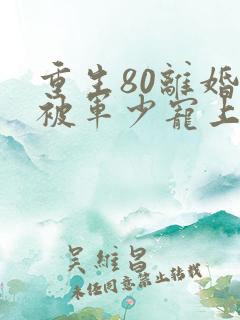 重生80離婚
被軍少寵上
吳維昌
未任同意禁止轉載